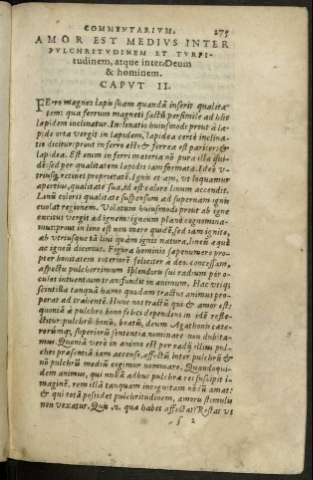 COMMENTARIVM. 275
AMOR EST MEDIVS INTER
PVLCHRITVDINEM ET TVRPI-
tudinem, atque inter Deum
& hominem.
CAPVT II.
FErro magnes lapis suam quandã inserit qualita
tem: qua ferrum magneti factũ persimile ad hũc
lapidem inclinatur. Inclinatio huiusmodi prout à la-
pide orta vergit in lapidem, lapidea certè inclina-
tio dicitur: prout in ferro est: & ferrea est pariter: &
lapidea. Est enim in ferri materia nõ pura illa qui-
dẽ: sed per qualitatem lapidis iam formata. Ideò v-
triusq; retinet proprietatẽ. Ignis etiam, vt loquamur
apertius, qualitate sua, id est calore linum accendit.
Linũ caloris qualitate suspensum ad supernam ignis
euolat regionem. Volatum huiusmodi prout ab igne
excitus vergit ad ignem: igneum planè cognomina-
mus: prout in lino est non mero quidẽ, sed iam ignito,
ab vtriusque tã lini quàm ignis natura, lineũ æquè
ac igneũ dicimus. Figura hominis sæpenumero prop-
ter bonitatem interiorẽ feliciter a deo concessam,
aspectu pulcherrimum splendorẽ sui radium per o-
culos intuentium transfundit in animum. Hac veluti
scintilla tanquã hamo quodam tractus animus pro-
perat ad trahentẽ. Hunc nos tractũ qui & amor est:
quoniã à pulchro bono felici dependens in idẽ refle-
ctitur: pulchrũ bonũ, beatũ, deum Agathonis cæte-
rorumq; superiorũ sententia nominare non dubita-
mus. Quoniã verò in animo est per radij illius pul-
chri præsentiã iam accenso, affectũ inter pulchrũ &
nõ pulchrũ mediũ cogimur nominare. Quandoqui-
dem animus, qui nullã adhuc pulchræ rei suscipit i-
maginẽ, rem illã tanquam incognitam nõdũ amat:
& qui totã possidet pulchritudinem, amoris stimulis
non vexatur. Restat vt
s 2